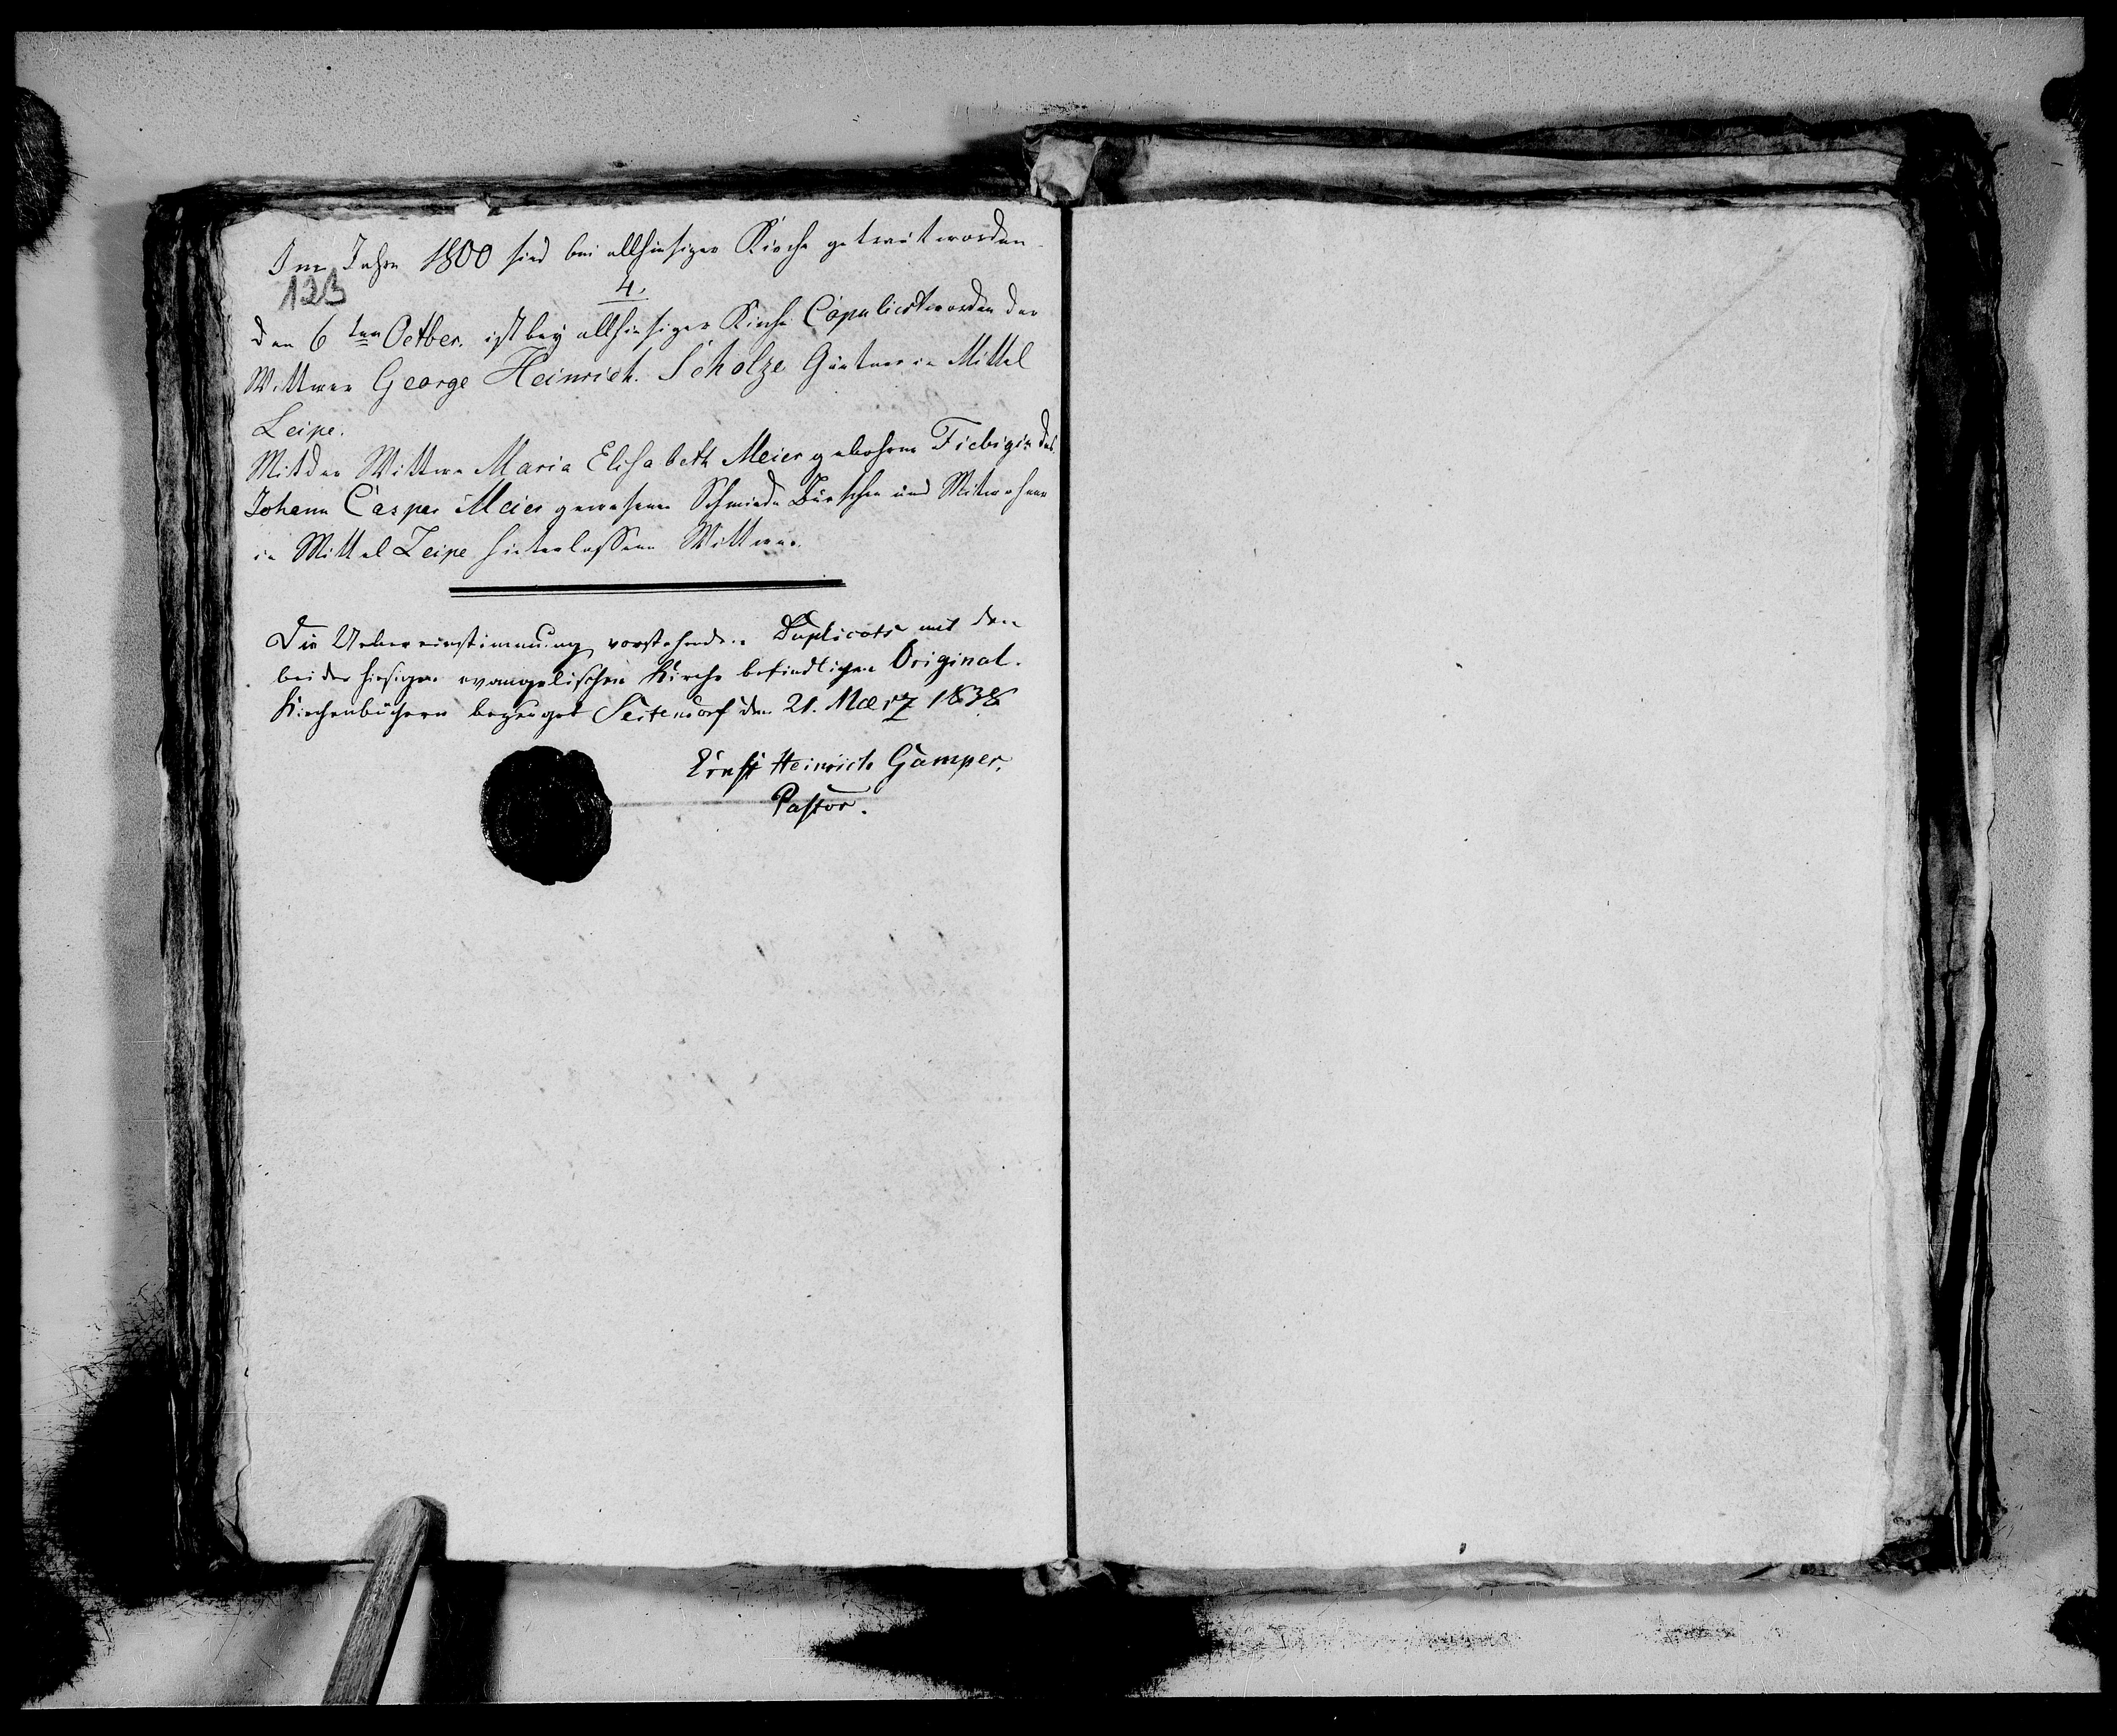 Im Jahre 1800 sind bei allhiesiger Kirche getraut worden.
123
4.
den 6 ten Octber. ist bey allhiesiger Kirche Copulirt worden der
Wittwer George Heinrich Scholze Gärtner in Mittel
Leipe.
Mit der Wittwe Maria Elisabeth Meier gebohrne Fiebigin des
Johann Casper Meier gewesener Schmiede Bursche und Mitwohner
in Mittel Leipe hinterlassene Wittwe.
Die Uebereinstimmung vorstehenden Duplicats mit den
bei der hiesigen evangelischen Kirche befindlichen Original-
Kirchenbüchern bezeuget Seitendorf den 21. Maerz 1838
Ernst Heinrich Gamper,
Pastor.